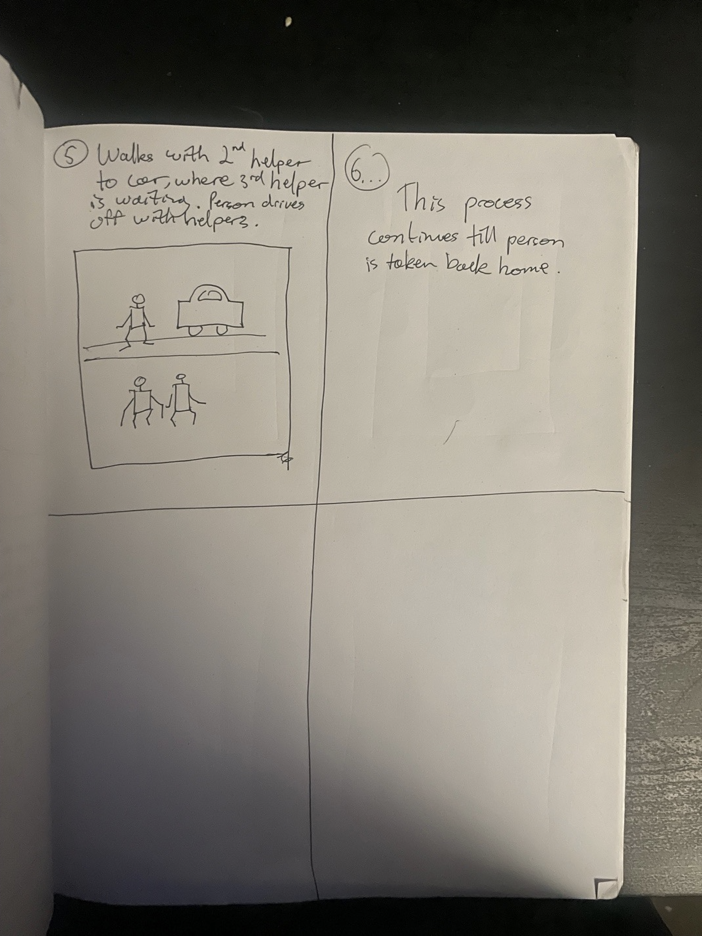 5 Walks with 2nd helper
to car, where 3rd helper
is waiting. Person drives
off with helpers.
6...
This process
continues till person
is taken back home.